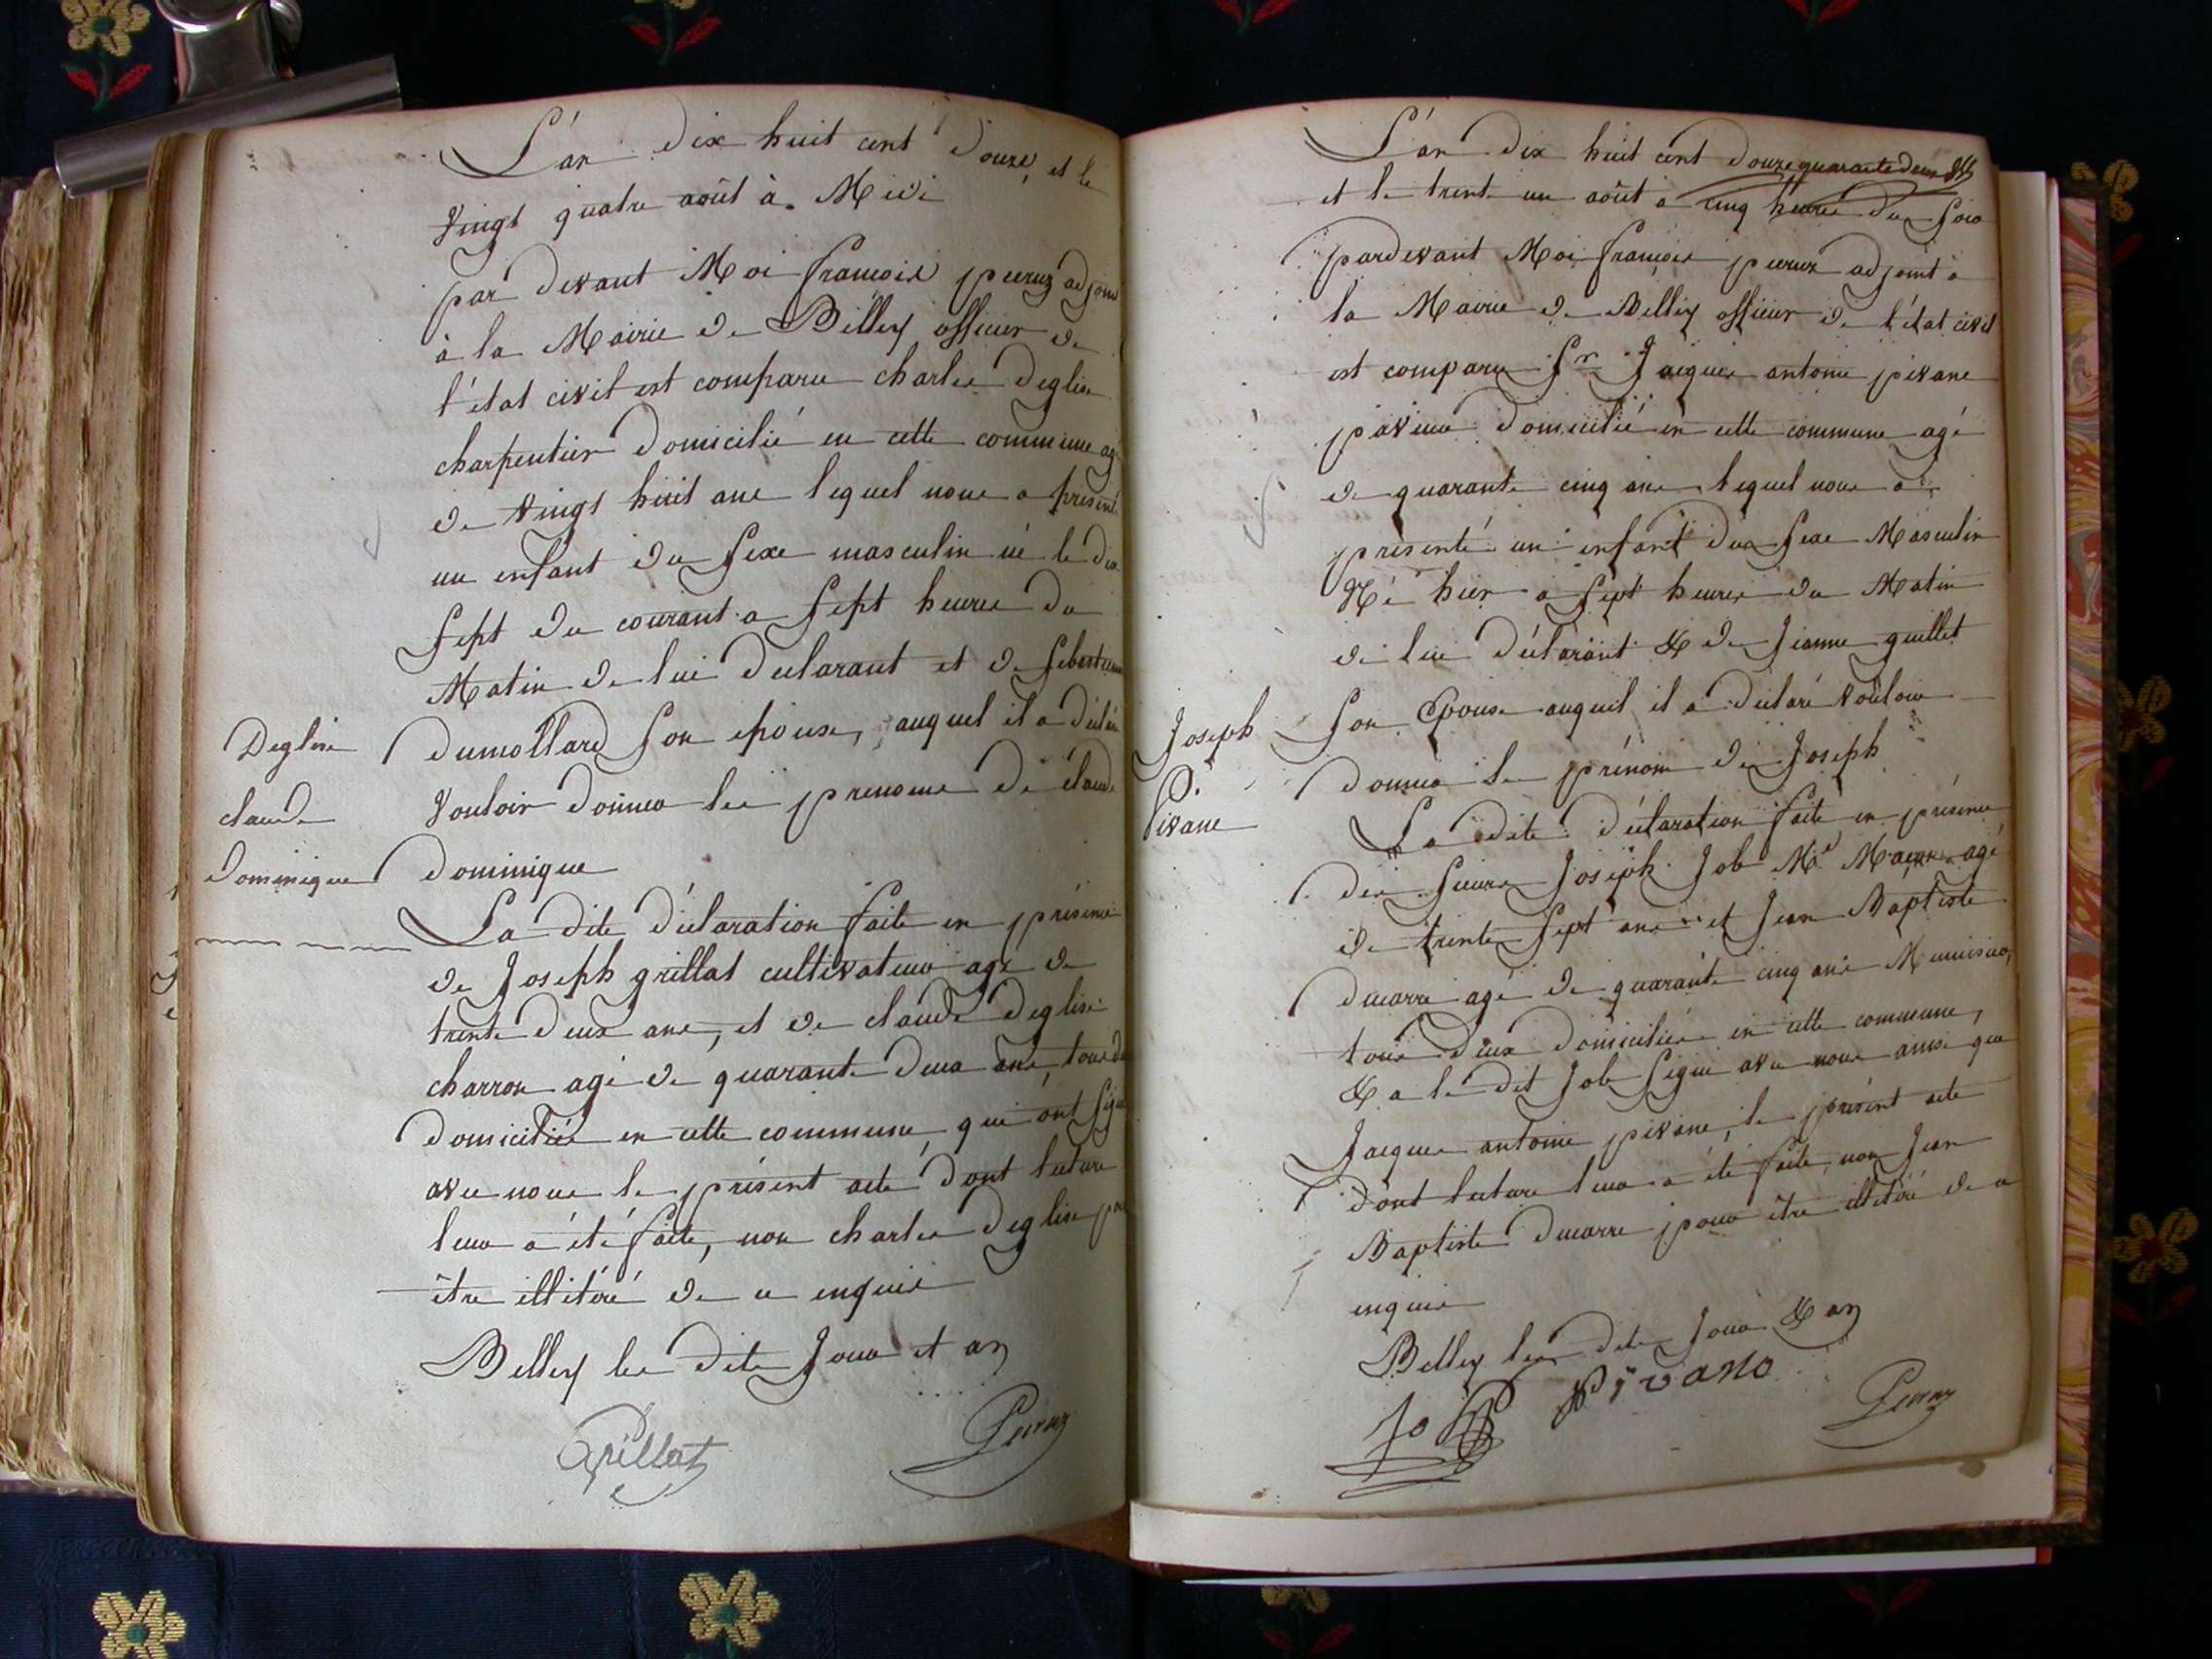 L'an dix huit cent douze, et le
Vingt quatre août à Midi
par devant Moi françois peeruz adjoint
à la Mairie de Belley officier de
l'état civil est comparu charles Deglise
charpentier domicilié en cette commune agé
de Vingt huit ans lequel nous a présenté
un enfant du sexe masculin né le dix
sept du courant a sept heures du
Matin de lui declarant et de sebastienne
Deglise
dumollard son épouse, auquel il a déclaré
Vouloir donner les prenoms de claude
claude
Dominique
dominique
La dite déclaration faite en présence
de Joseph grillat cultivateur agé de
trente deux ans, et de claude deglise
charron agé de quarante deux ans, tous deux
domiciliés en cette commune, qui ont signé
avec nous le présent acte dont lecture
leur a été faite, non charles deglise pour
être illitéré de ce enquis
Belley les dits Jour et an
Grillat
Peeruz
L'an dix huit cent douze
et le trente un août a cinq heures du soir
pardevant Moi françois peeruz adjoint à
la Mairie de Belley officier de l'état civil
est comparu Sr Jacques antoine pivane
paveur domicilié en cette commune agé
de quarante cinq ans lequel nous a
présenté un enfant du sexe Masculin
Né hier a sept heures du Matin
de lui déclarant & de Jeanne guillet
Joseph
son Epouse auquel il a déclaré Vouloir
donner le prénom de Joseph
Pivane
La dite déclaration faite en présence
des sieurs Joseph Job Md agé
de trente sept ans et Jean Baptiste
ducarre agé de quarante cinq ans Menuisier,
tous deux domiciliés en cette commune,
& a le dit Job signé avec nous ainsi que
Jacques antoine pivane, le présent acte
dont lecture leur a été faite, non Jean
Baptiste ducarre pour être illitéré de ce
enquis
Belley les dits Jour & an
Job
Pivano
Peeruz